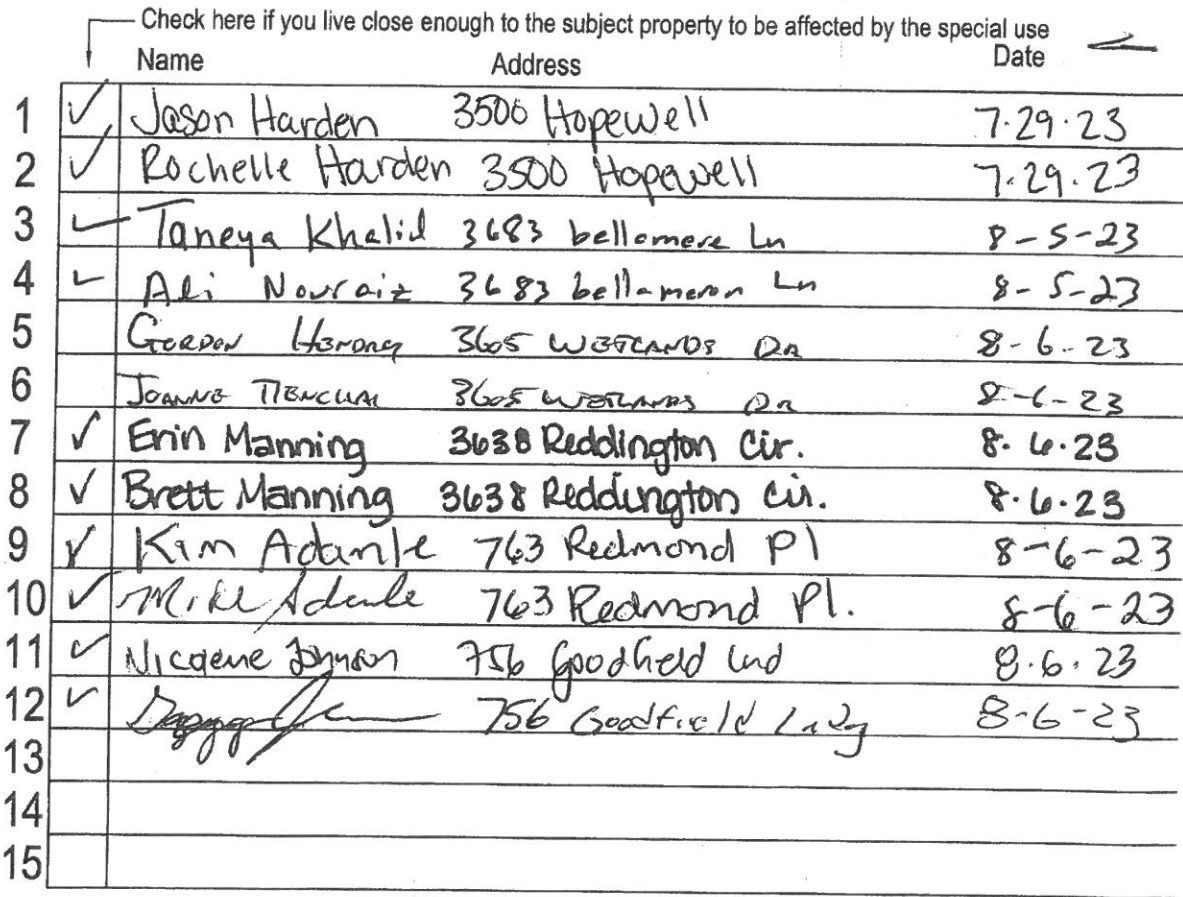 Check here if you live close enough to the subject property to be affected by the special use
Name Address Date
1 ✓ Jason Harden 3500 Hopewell 7.29.23
2 ✓ Rochelle Harden 3500 Hopewell 7.29.23
3 ✓ Taneya Khalid 3683 bellemere Ln 8-5-23
4 ✓ Ali Nouraiz 3683 Ln 8-5-23
5 Gordon 3605 WETLANDS DR 8-6-23
6 JOANNE 3605 WETLANDS DR 8-6-23
7 ✓ Erin Manning 3638 Reddington Cir. 8.6.23
8 ✓ Brett Manning 3638 Reddington Cir. 8.6.23
9 ✓ Kim 763 Redmond Pl 8-6-23
10 ✓ Mike 763 Redmond Pl. 8-6-23
11 ✓ Johnson 756 Goodfield 8.6.23
12 ✓ 756 Goodfield 8-6-23
13
14
15